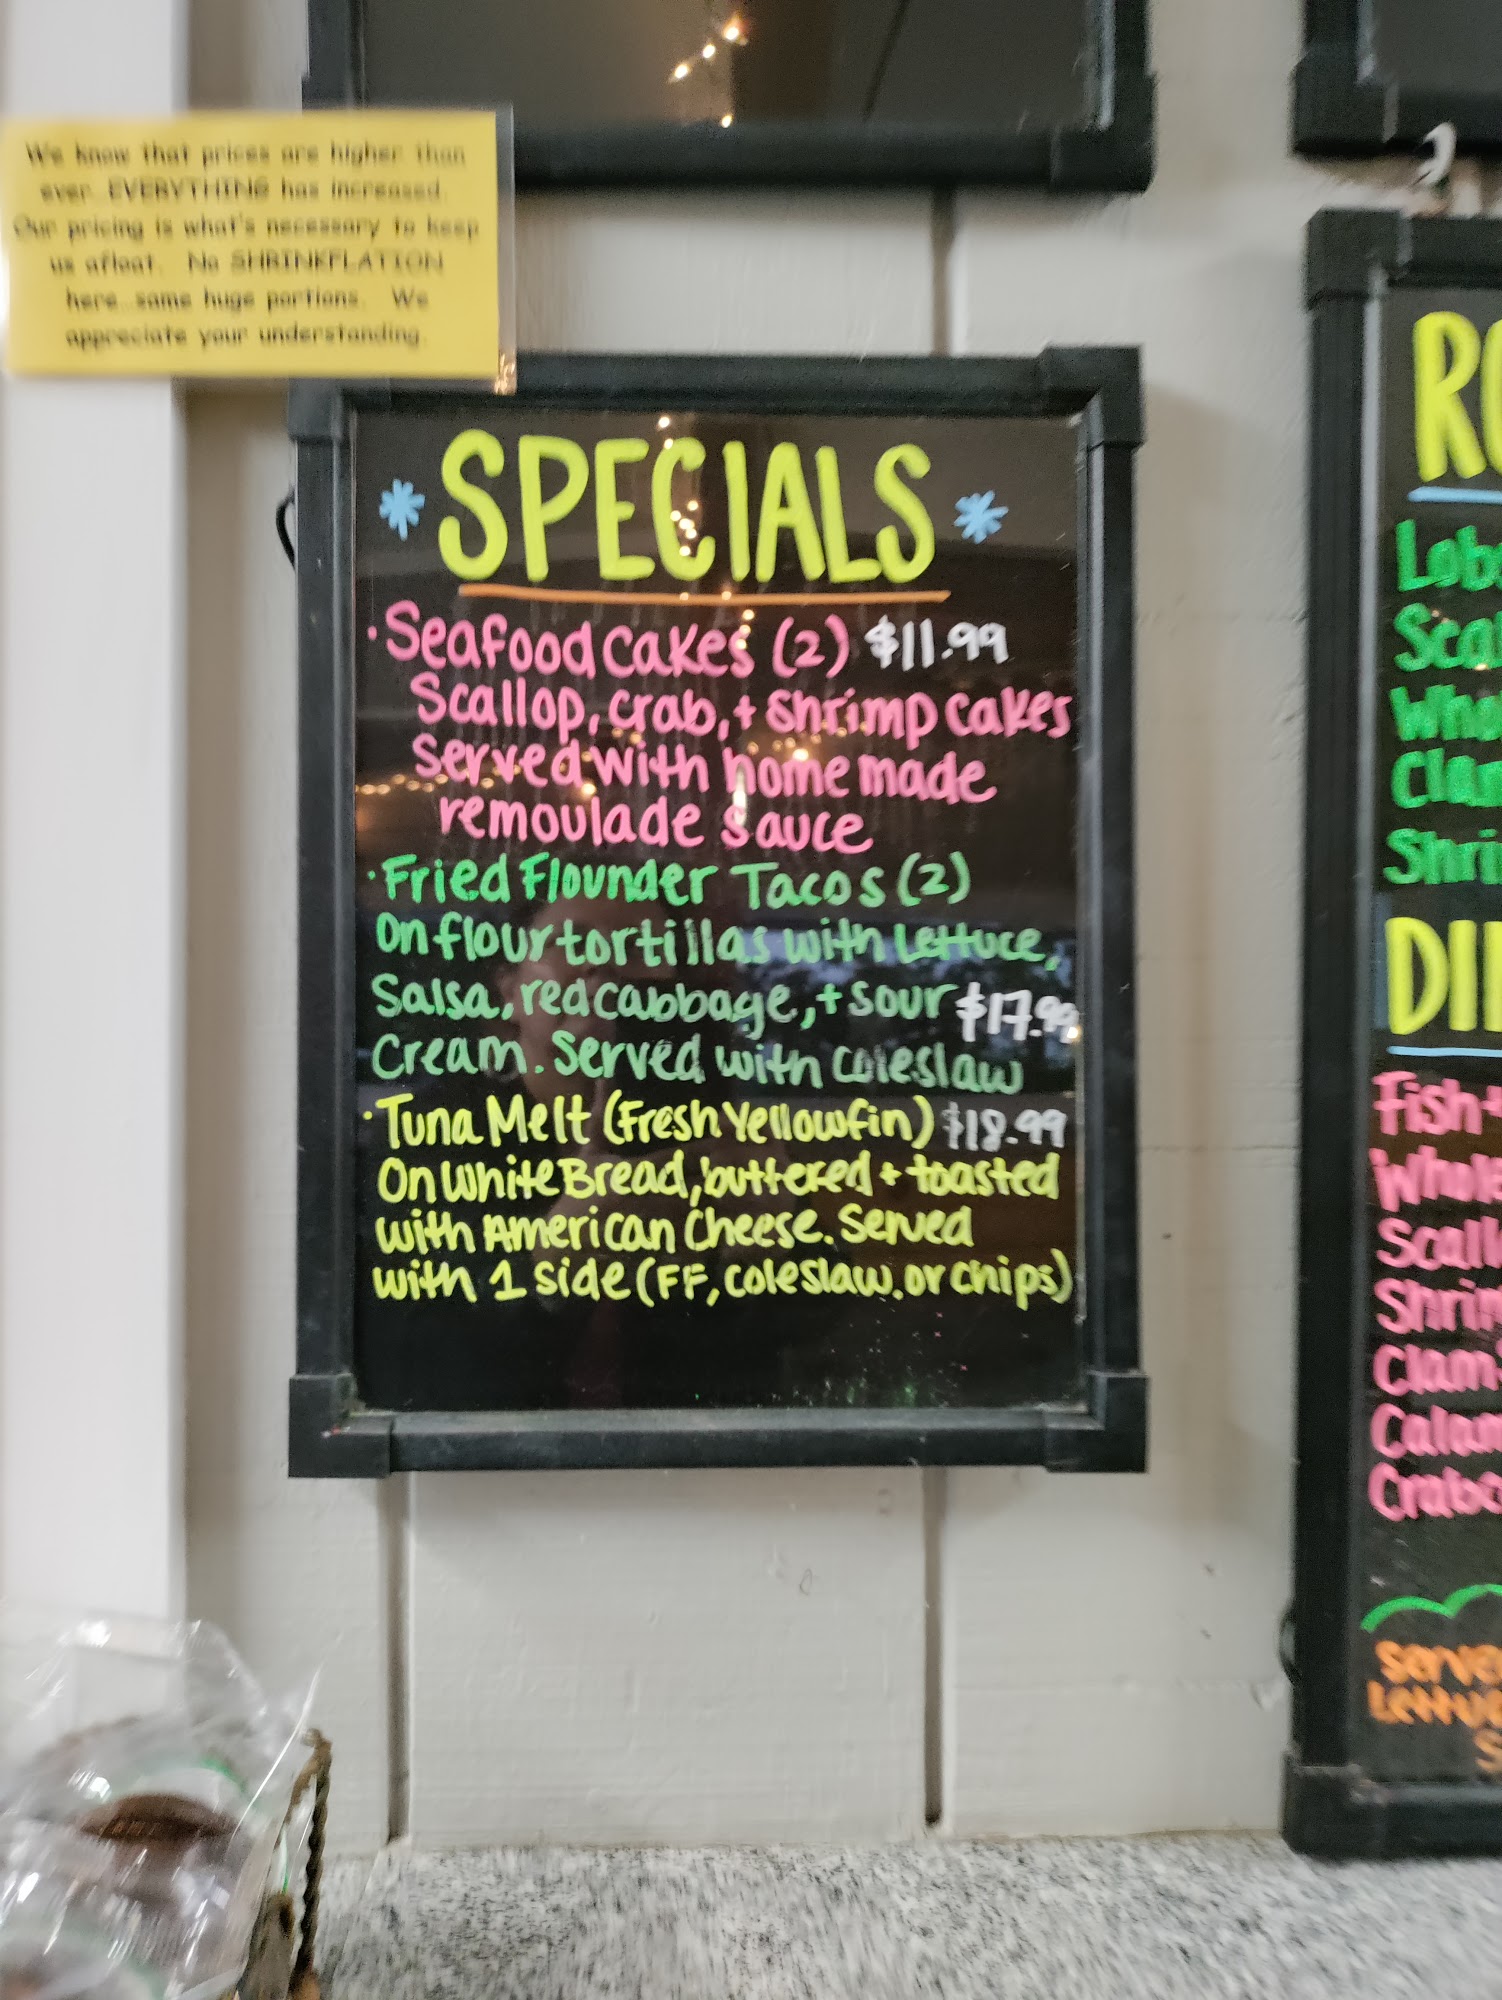 We know that prices are higher than
ever...EVERYTHING has increased.
Our pricing is what's necessary to keep
us afloat. No SHRINKFLATION
here...same huge portions. We
appreciate your understanding.
* SPECIALS *
· Seafood Cakes (2) $11.99
Scallop, crab, + shrimp cakes
served with homemade
remoulade sauce
· Fried Flounder Tacos (2)
On flour tortillas with Lettuce,
Salsa, red cabbage, + sour $17.99
Cream. Served with coleslaw
· Tuna Melt (Fresh Yellowfin) $18.99
On White Bread, buttered + toasted
with American Cheese. Served
with 1 side (FF, coleslaw, or chips)
RO
Lobs
Scal
Who
Clam
Shri
DI
Fish +
Whole
Scall
Shrim
Clam
Calam
Crabc
Serve
Lettuce
S